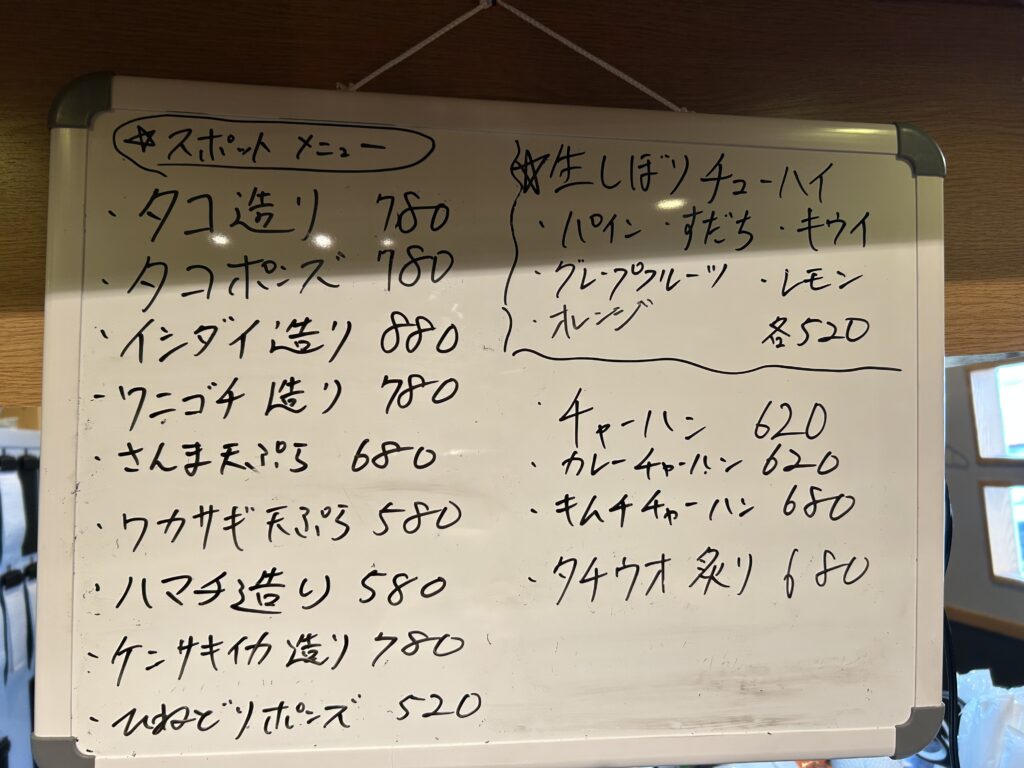 ☆スポット メニュー
・タコ造り 780
・タコポンズ 780
・イシダイ造り 880
・ワニゴチ 造り 780
・さんま天ぷら 680
・ワカサギ天ぷら 580
・ハマチ造り 580
・ケンサキイカ造り 780
・ひねどりポンズ 520
☆生しぼりチューハイ
・パイン ・すだち ・キウイ
・グレープフルーツ ・レモン
・オレンジ 各520
・チャーハン 620
・カレーチャーハン 620
・キムチチャーハン 680
・タチウオ 炙り 680